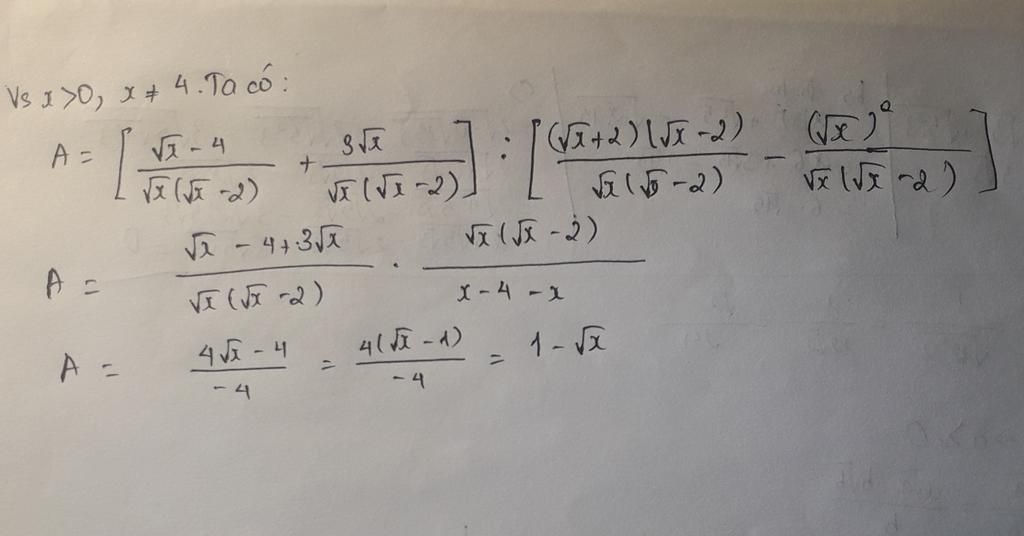 Vs x > 0, x ≠ 4. Ta có:
A = [ (√x - 4) / (√x(√x - 2)) + 3√x / (√x(√x - 2)) ] : [ (√x + 2)(√x - 2) / (√x(√x - 2)) - (√x)² / (√x(√x - 2)) ]
A = (√x - 4 + 3√x) / (√x(√x - 2)) · √x(√x - 2) / (x - 4 - x)
A = (4√x - 4) / (-4) = 4(√x - 1) / (-4) = 1 - √x